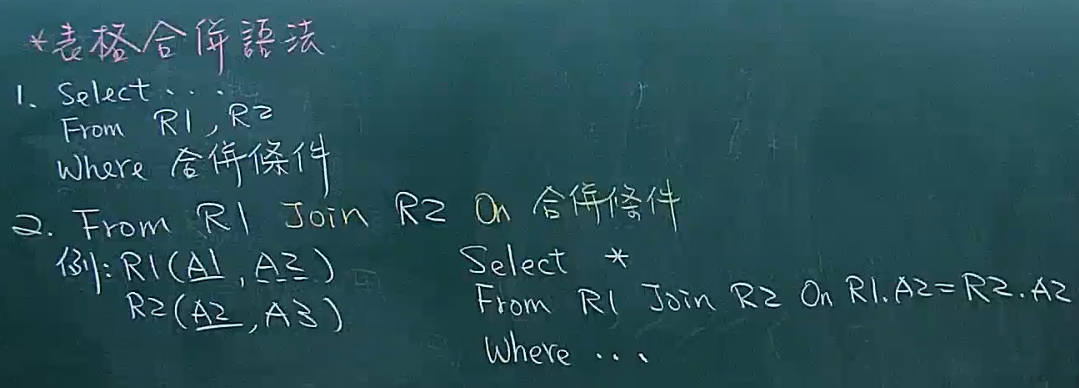 *表格合併語法
1. Select...
From R1, R2
Where 合併條件
2. From R1 Join R2 On 合併條件
例: R1(A1, A2)
R2(A2, A3)
Select *
From R1 Join R2 On R1.A2=R2.A2
Where ...